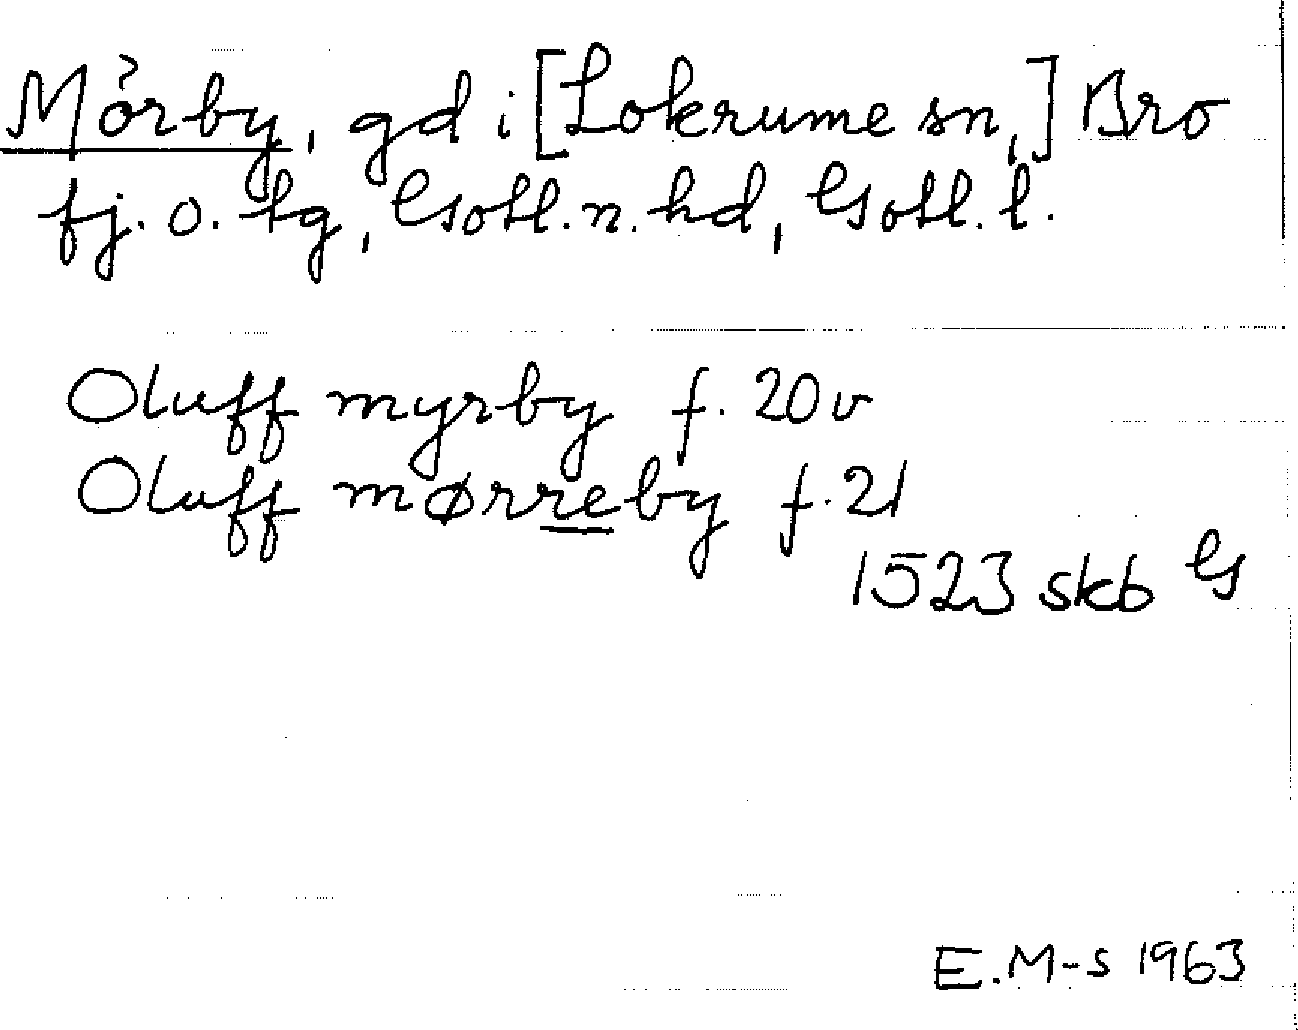 Mörby, gd i [Lokrume sn,] Bro
fj. o. tg, Gotl. n. hd, Gotl. l.
Oluff myrby f. 20v
Oluff mørreby f. 21
1523 skb G
E. M-s 1963